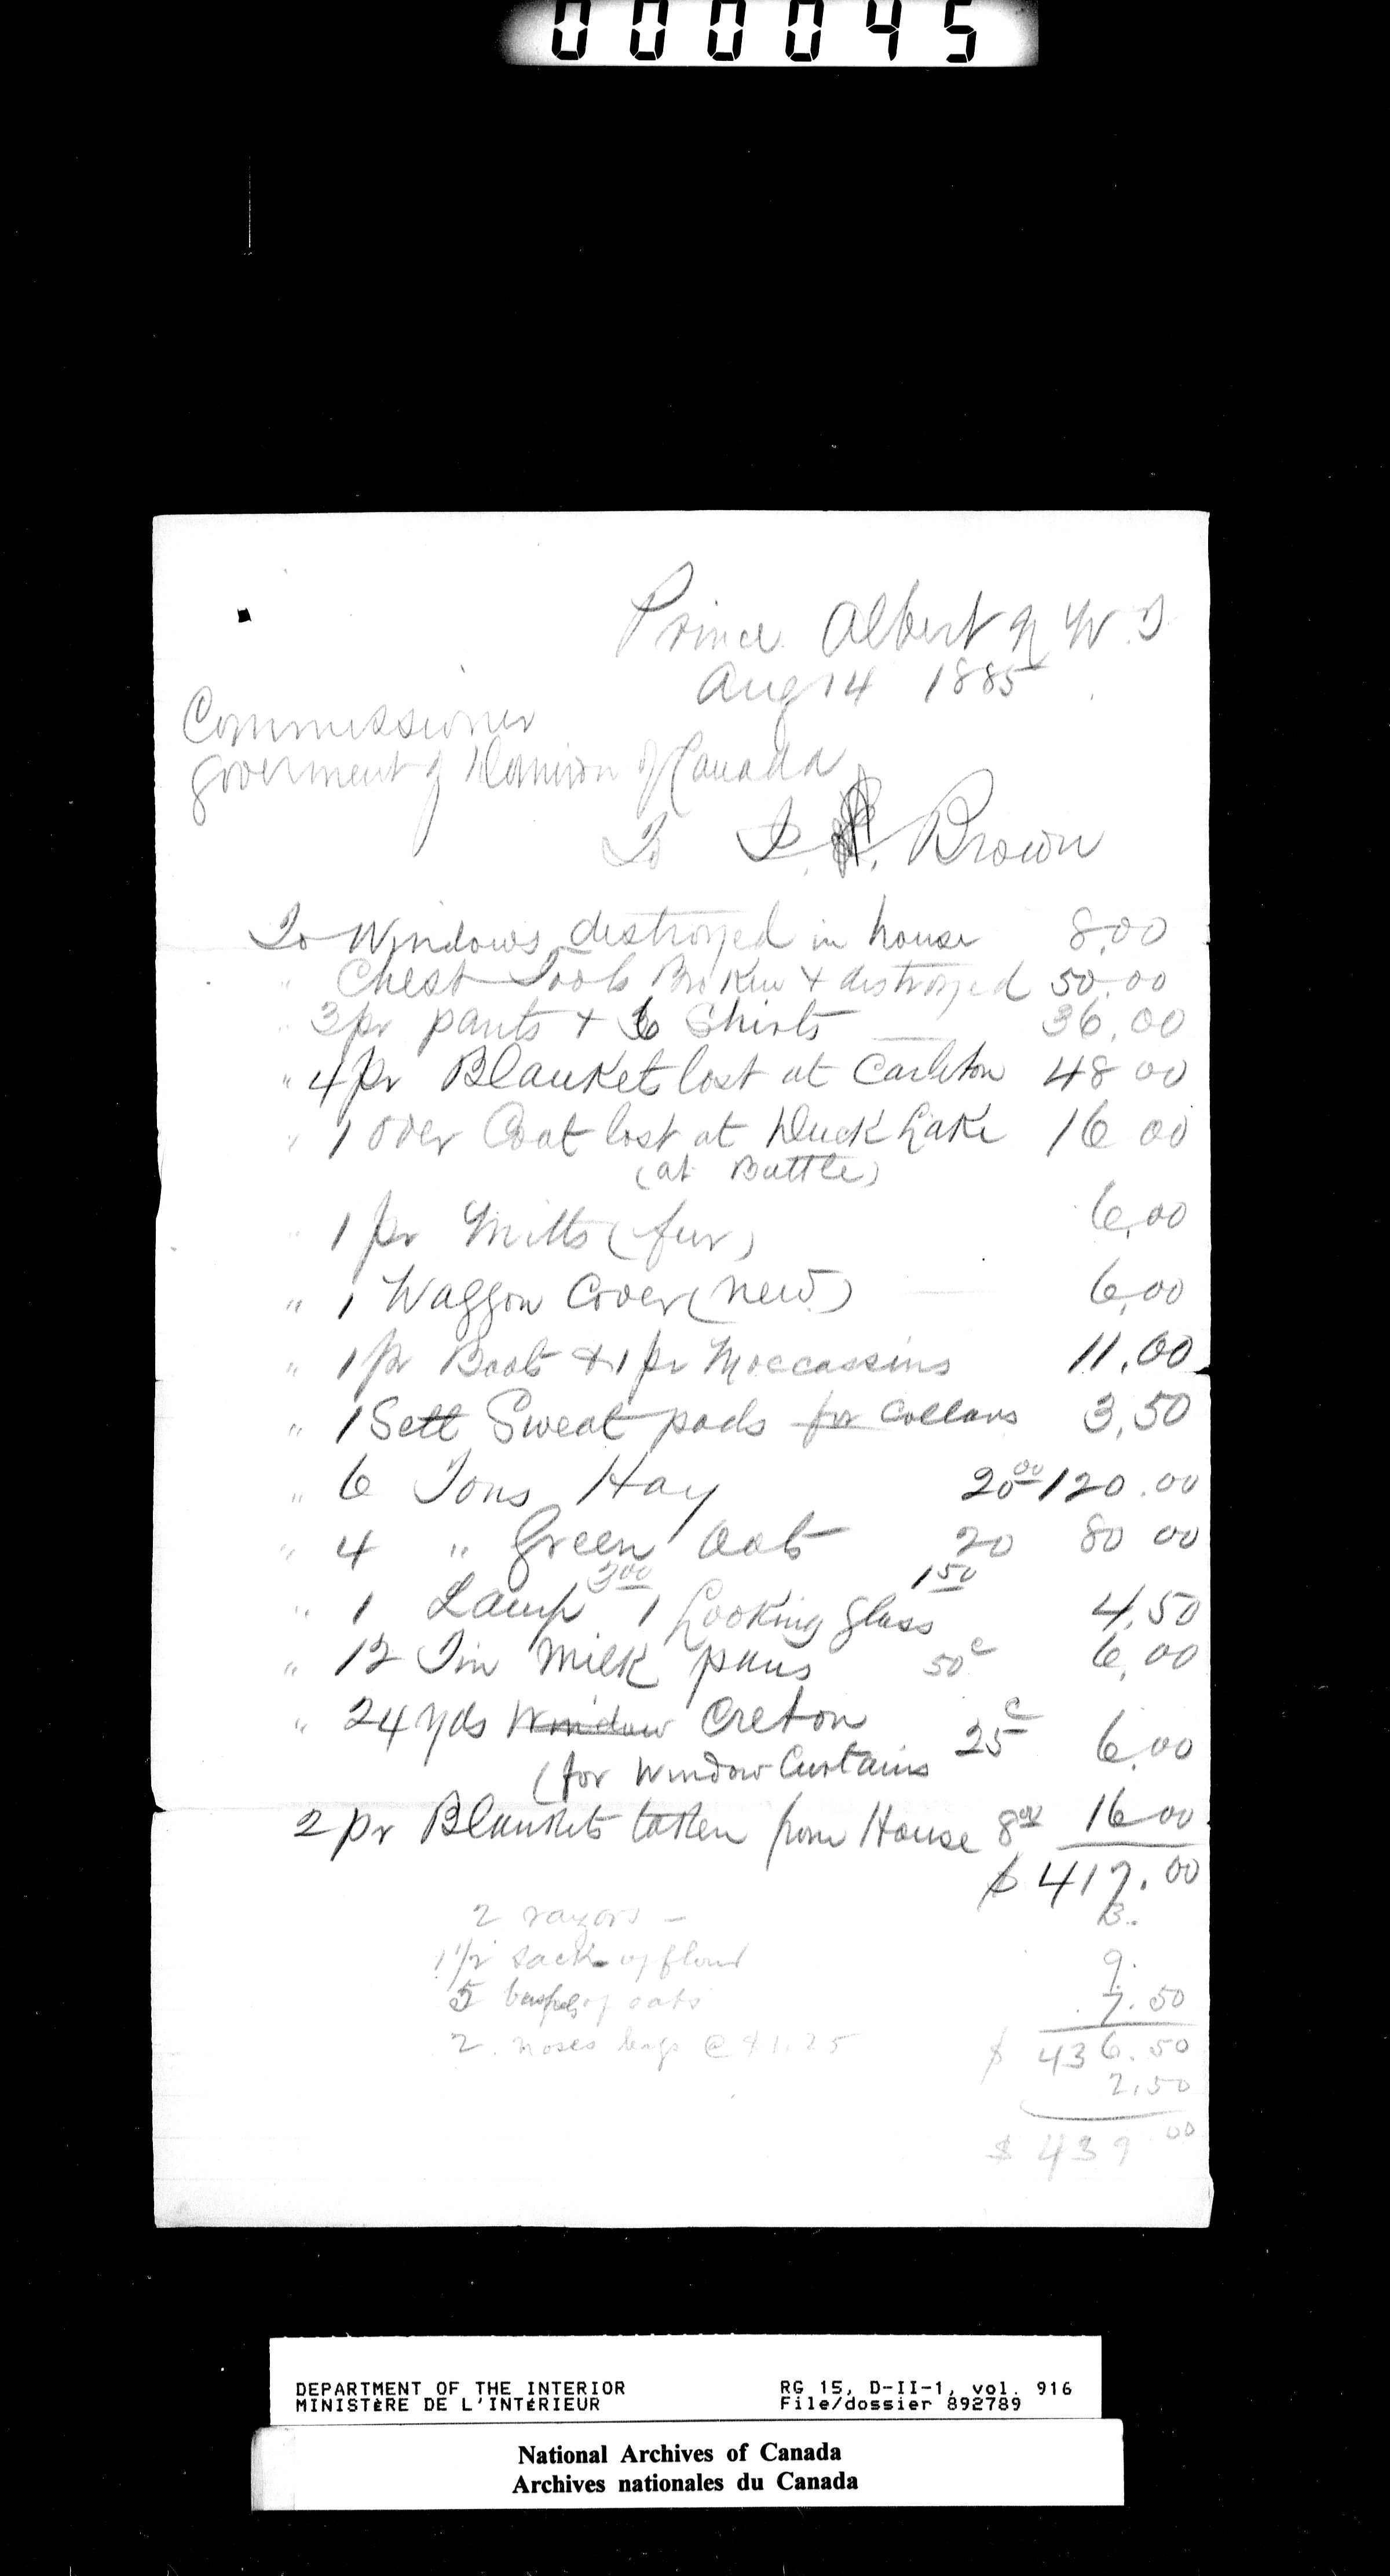 000045
Prince Albert N W T
Aug 14 1885
Commissioner
Goverment of Dominion of Canada
To Brown
To Windows destroyed in house 8.00
" Chest Tools Broken & destroyed 50.00
" 3 pr pants & 6 Shirts 36.00
" 4 pr Blankets lost at Carleton 48 00
" 1 Over Coat lost at Duck Lake 16 00
(at Battle)
" 1 pr Mitts (fur) 6.00
" 1 Waggon Cover (new) 6.00
" 1 pr Boots & 1 pr Moccassins 11.00
" 1 Sett Sweat pads for Collars 3.50
" 6 Tons Hay 20 00 120.00
" 4 " Green Oats 20 80 00
" 1 Lamp 3 00 1 Looking glass 1 50 4.50
" 12 Tin Milk pans 50 c 6.00
" 24 yds Window Creton 25 c 6.00
(for Window Curtains
2 pr Blankets taken from House 8 00 16 00
$ 417.00
2 razors - 3.
1 1/2 sack of flour 9.
5 bushels of oats 7.50
2 noses bags @ $1.25 $ 436.50
2.50
$ 439 00
DEPARTMENT OF THE INTERIOR RG 15, D-II-1, vol. 916
MINISTÈRE DE L'INTÉRIEUR File/dossier 892789
National Archives of Canada
Archives nationales du Canada